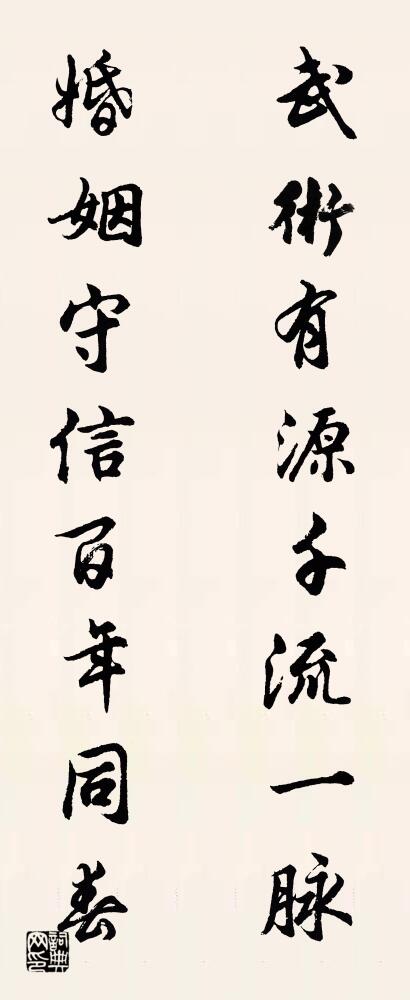 武術有源千流一脉
婚姻守信百年同春
詞典网印